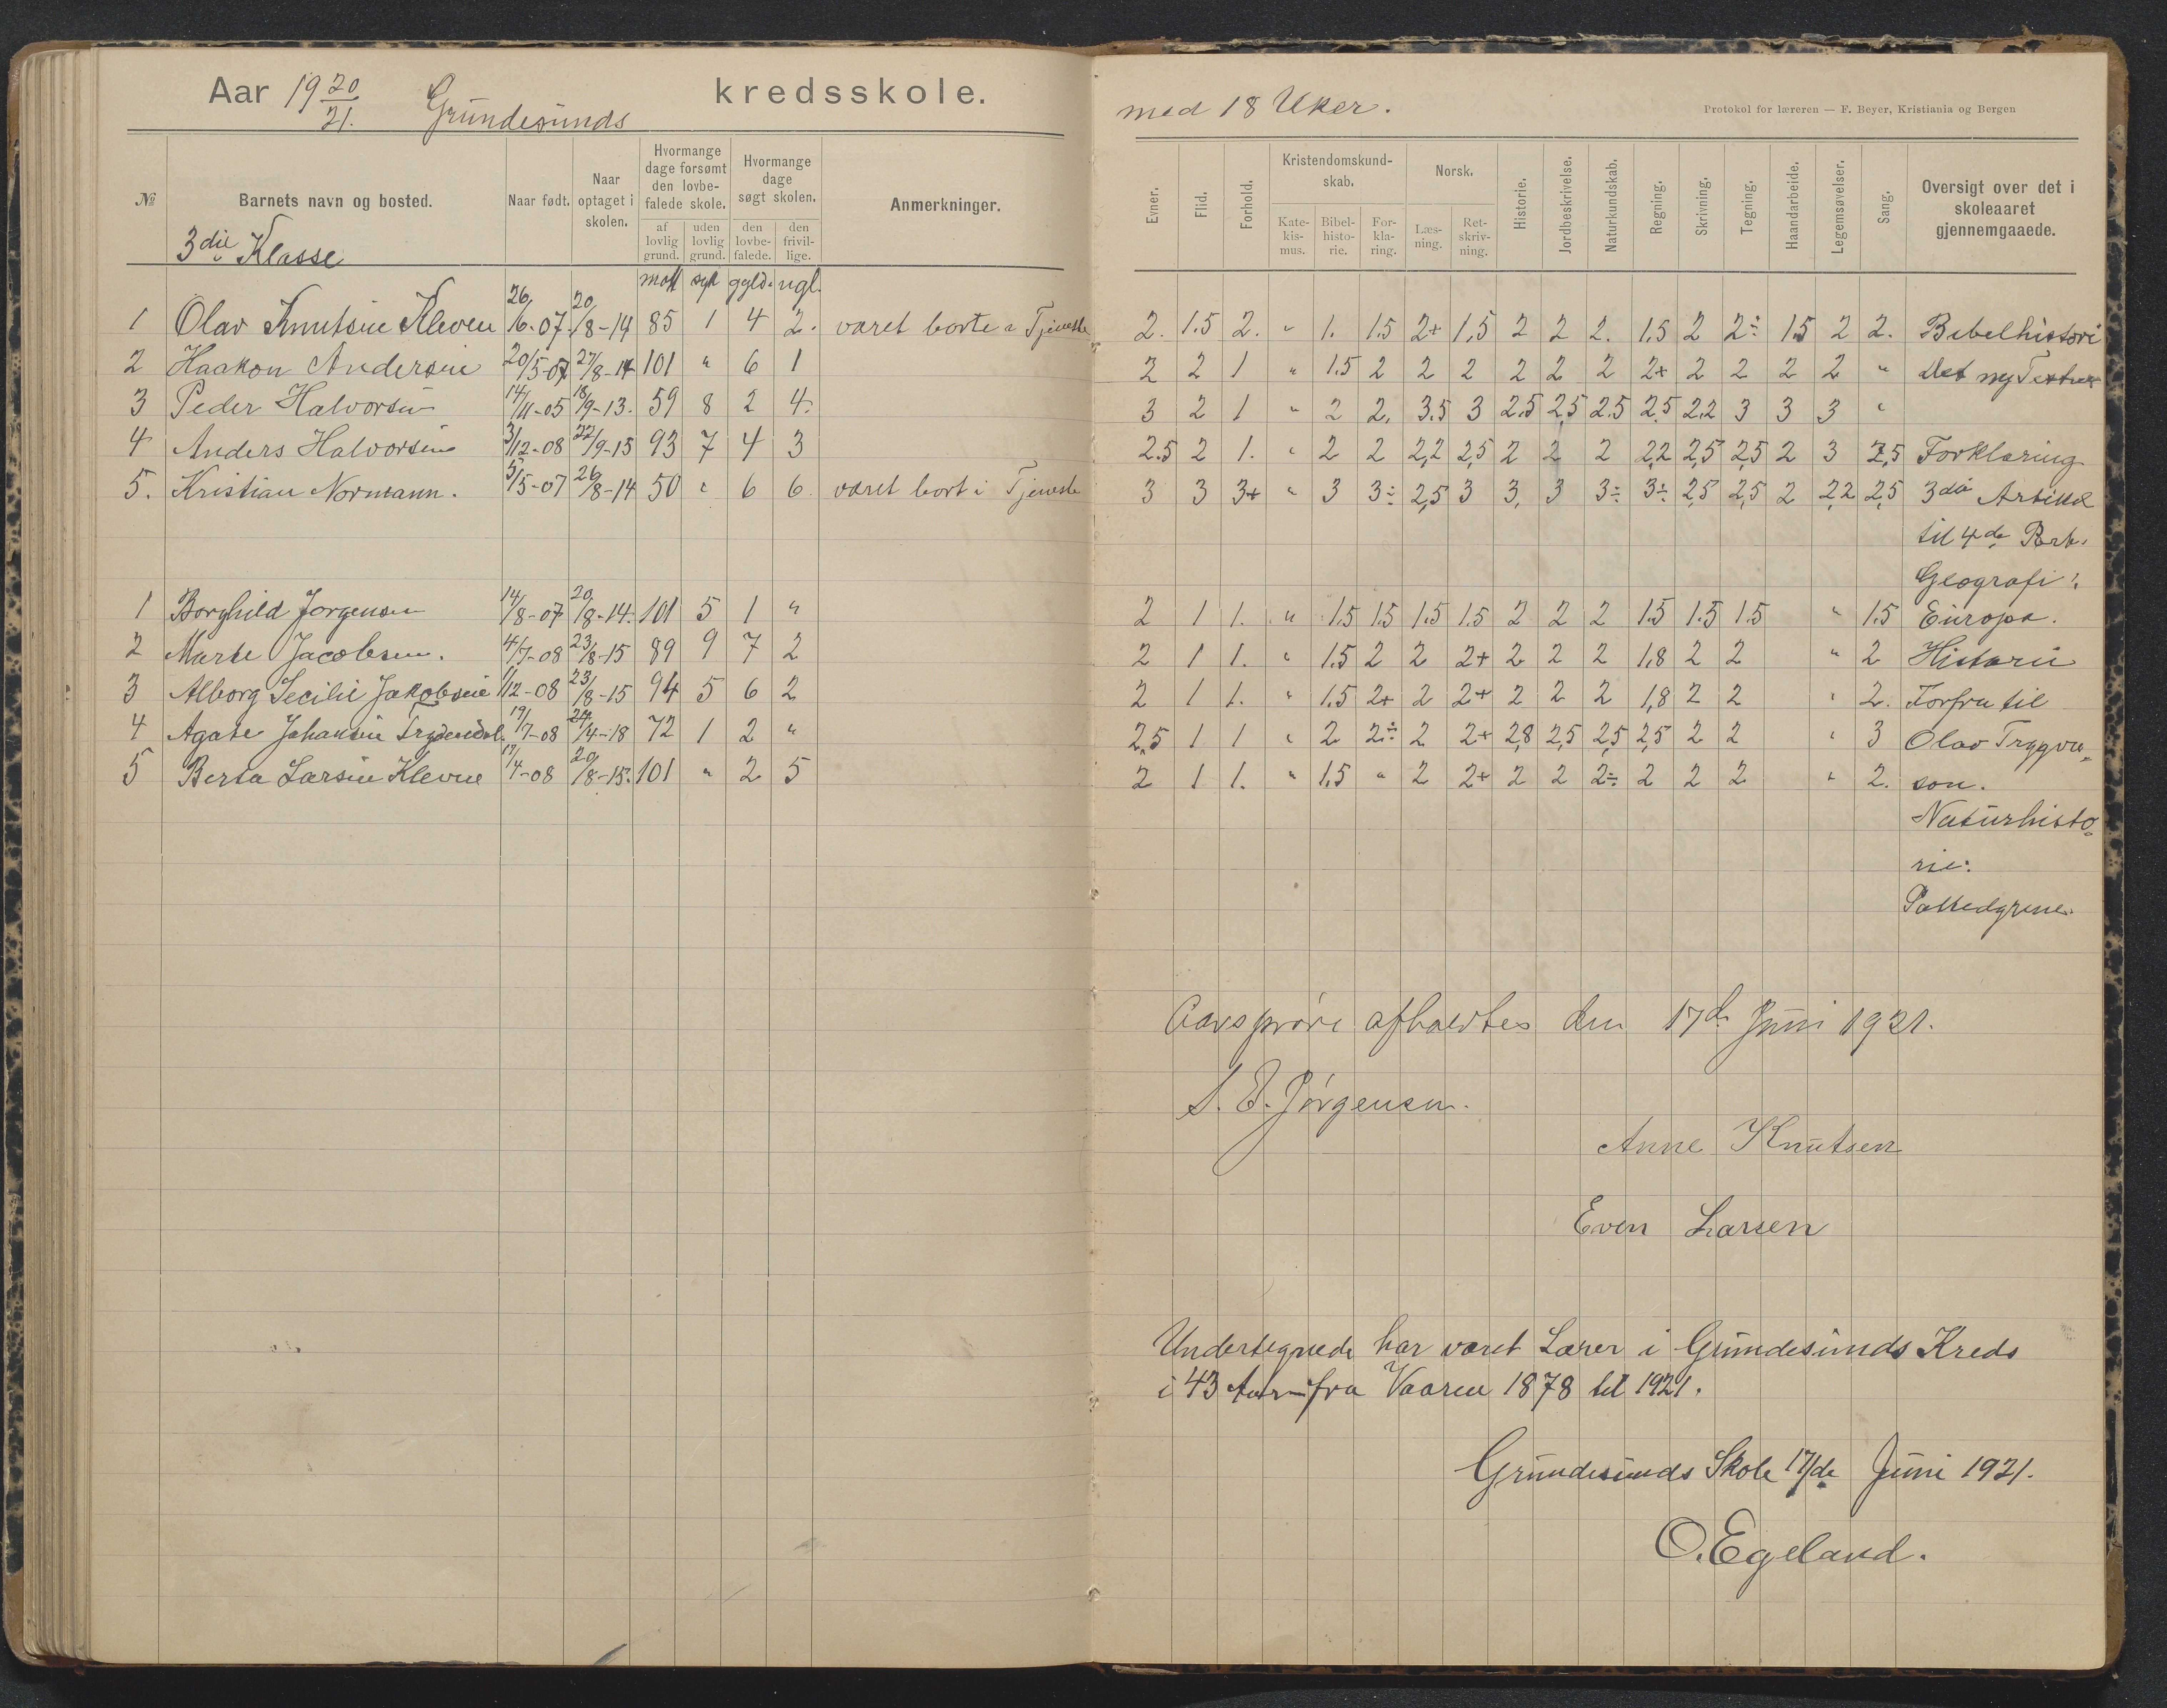 Aar 19 20/21. Grundesunds kredsskole.
№
Barnets navn og bosted.
Naar født.
Naar optaget i skolen.
Hvormange dage forsømt den lovbefalede skole.
af lovlig grund.
uden lovlig grund.
Hvormange dage søgt skolen.
den lovbefalede.
den frivillige.
Anmerkninger.
3die Klasse
møtt syk gyld. ugl.
1 Olav Knutsen Kleven 26/6-07. 20/8-14 85 1 4 2. været borte i Tjeneste
2 Haakon Andersen 20/5-07 27/8-14 101 " 6 1
3 Peder Halvorsen 14/11-05 18/9-13. 59 8 2 4.
4 Anders Halvorsen 3/12-08 22/9-15 93 7 4 3
5. Kristian Normann. 5/5-07 26/8-14 50 " 6 6. været bort i Tjeneste
1 Borghild Jørgensen 14/8-07 20/8-14. 101 5 1 "
2 Marte Jacobsen. 4/7-08 23/8-15 89 9 7 2
3 Alborg Secilie Jakobsen 1/12-08 23/8-15 94 5 6 2
4 Agate Johansen 19/7-08 24/4-18 72 1 2 "
5 Berta Larsen Klevne 17/4-08 20/8-15. 101 " 2 5
med 18 Uker.
Protokol for læreren — F. Beyer, Kristiania og Bergen
Evner.
Flid.
Forhold.
Kristendomskundskab.
Katekismus.
Bibelhistorie.
Forklaring.
Norsk.
Læsning.
Retskrivning.
Historie.
Jordbeskrivelse.
Naturkundskab.
Regning.
Skrivning.
Tegning.
Haandarbeide.
Legemsøvelser.
Sang.
Oversigt over det i skoleaaret gjennemgaaede.
2. 1.5 2. " 1. 1.5 2+ 1,5 2 2 2. 1.5 2 2÷ 1.5 2 2. Bibelhistori
2 2 1 " 1.5 2 2 2 2 2 2 2+ 2 2 2 2 " Det ny
3 2 1 " 2 2. 3.5 3 2.5 2.5 2.5 2.5 2.2 3 3 3 "
2.5 2 1. " 2 2 2,2 2,5 2 2 2 2,2 2,5 2,5 2 3 2,5 Forklaring
3 3 3+ " 3 3÷ 2,5 3 3, 3 3÷ 3÷ 2,5 2,5 2 2,2 2,5 3die Artikel
til 4de Part.
Geografi:
2 1 1. " 1.5 1.5 1.5 1.5 2 2 2 1.5 1.5 1.5 " 1.5 Europa.
2 1 1. " 1.5 2 2 2+ 2 2 2 1,8 2 2 " 2 Historie
2 1 1. " 1.5 2+ 2 2+ 2 2 2 1,8 2 2 " 2. Forfra til
2,5 1 1 " 2 2÷ 2 2+ 2,8 2,5 2,5 2,5 2 2 " 3 Olav Trygve-
2 1 1. " 1.5 " 2 2+ 2 2 2÷ 2 2 2 " 2. son.
Naturhisto-
rie:
Pattedyrene.
Aarsprøve afholdtes den 17de Juni 1921.
S. E. Jørgensen.
Anne Knutsen
Even Larsen
Undertegnede har været Lærer i Grundesunds Kreds
i 43 Aar – fra Vaaren 1878 til 1921.
Grundesunds Skole 17/de Juni 1921.
O. Egeland.